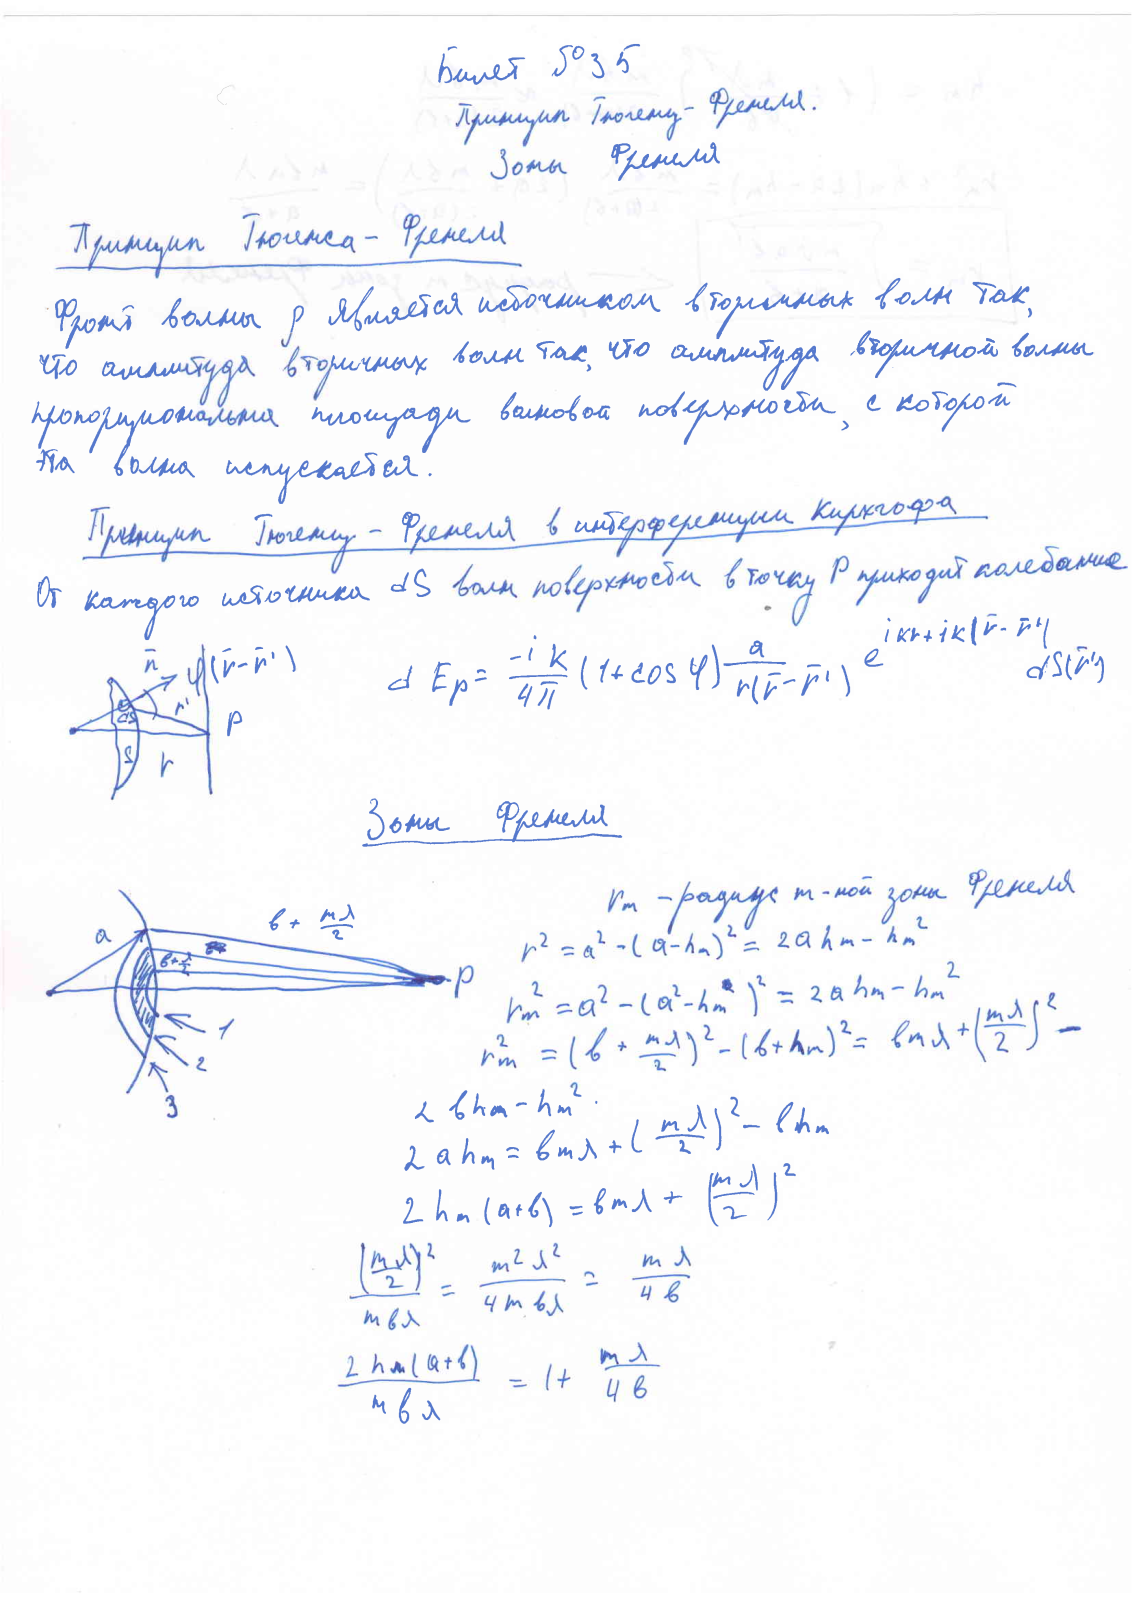 Билет №35
Принцип Гюгенц-Френеля.
Зоны Френеля
Принцип Гюгенса-Френеля
Фронт волны является источником вторичных волн так,
что амплитуда вторичных волн так, что амплитуда вторичной волны
пропорциональна площади волновой поверхности, с которой
эта волна испускается.
Принцип Гюгенц-Френеля в интерференции Кирхгофа
От каждого источника dS волн поверхности в точку P приходит колебание
dE_p = \frac{-ik}{4π} (1+cos φ) \frac{a}{r(r̄-r̄')} e^{ikr+ik(r̄-r̄')} dS(r̄')
n̄ φ (r̄-r̄')
dS r'
S r P
Зоны Френеля
r_m - радиус m-ной зоны Френеля
a b + \frac{mλ}{2}
b+\frac{λ}{2} P
1
2
3
r² = a² - (a-h_m)² = 2ah_m - h_m²
r_m² = a² - (a²-h_m)² = 2ah_m - h_m²
r_m² = (b + \frac{mλ}{2})² - (b+h_m)² = bmλ + (\frac{mλ}{2})² -
2bh_m - h_m².
2ah_m = bmλ + (\frac{mλ}{2})² - bh_m
2h_m(a+b) = bmλ + (\frac{mλ}{2})²
\frac{(\frac{mλ}{2})²}{mbλ} = \frac{m²λ²}{4mbλ} = \frac{mλ}{4b}
\frac{2h_m(a+b)}{mbλ} = 1 + \frac{mλ}{4b}